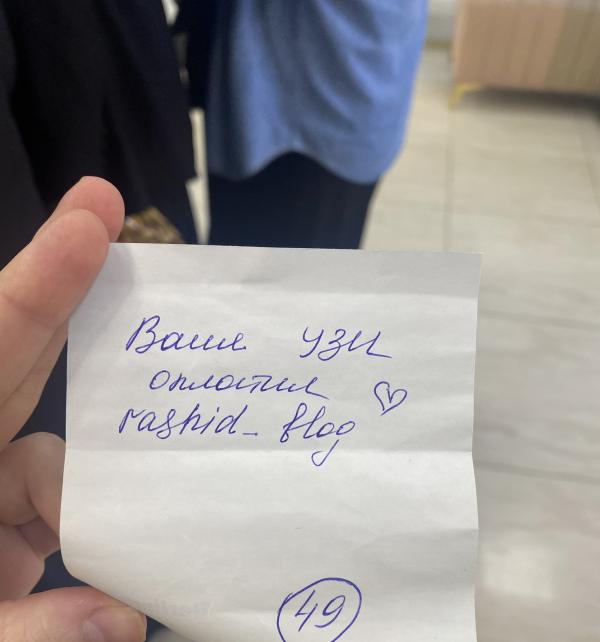 Ваше УЗИ
оплатил ♡
rashid_blog
49